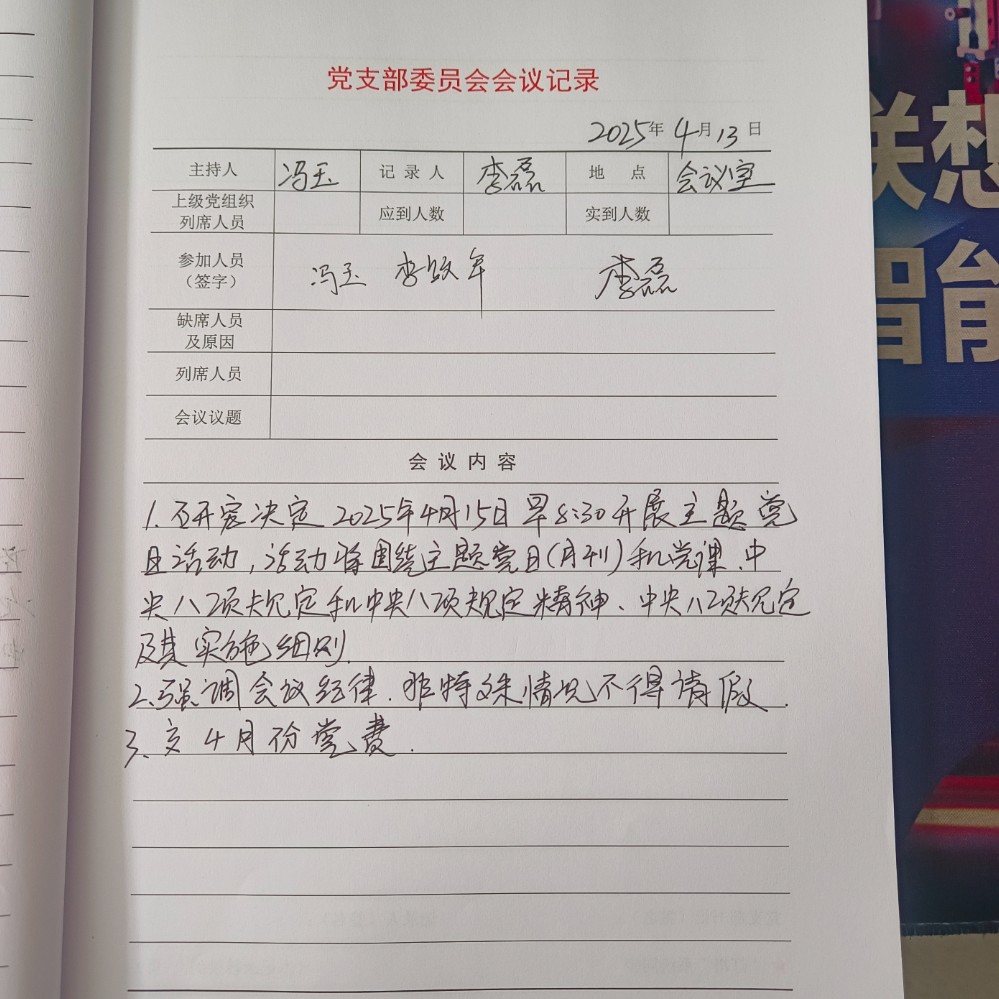 党支部委员会会议记录
2025年4月13日
主持人 冯玉 记录人 李磊 地点 会议室
上级党组织列席人员 应到人数 实到人数
参加人员（签字） 冯玉 李跃年 李磊
缺席人员及原因
列席人员
会议议题
会议内容
1.研究决定2025年4月15日早8:30开展主题党
日活动,活动将围绕主题党日(月刊)和党课、中
央八项规定和中央八项规定精神、中央八项规定
及其实施细则.
2.强调会议纪律.非特殊情况不得请假.
3、交4月份党费.
联想
智能